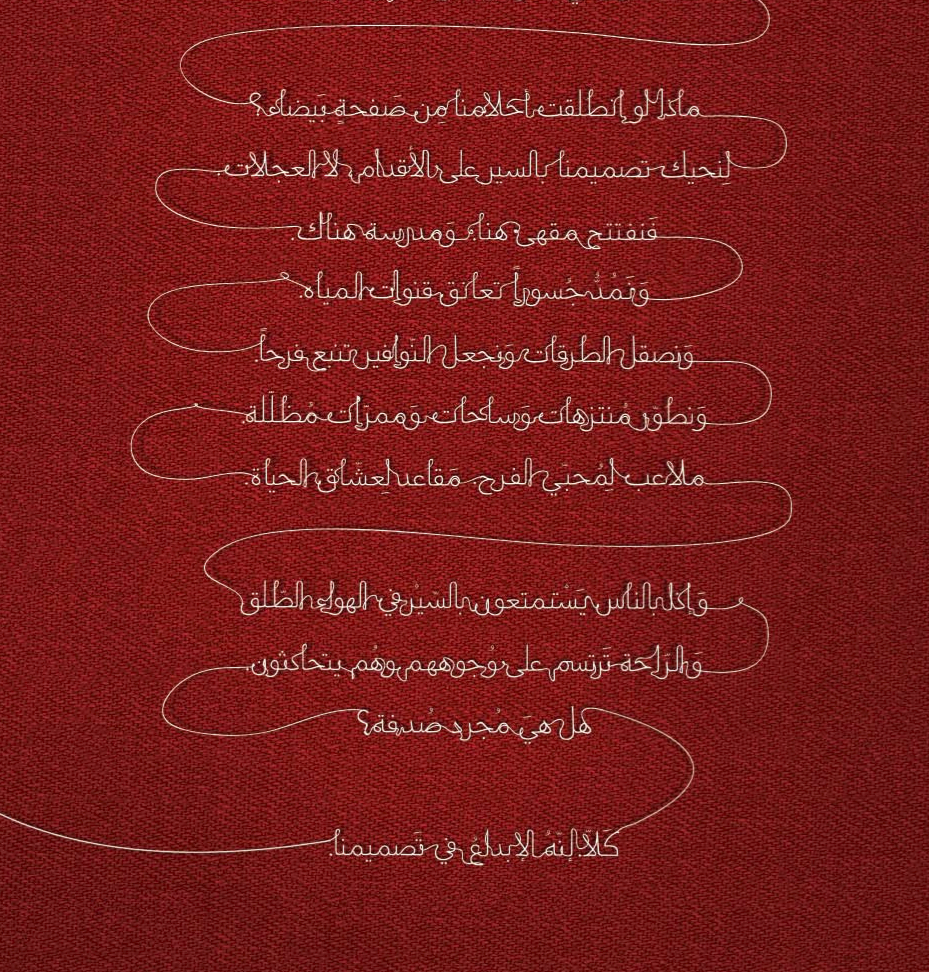 ماذا لو إنطلقت أحلامنا مِن صَفحةٍ بَيضاء؟
لِنحيك تصميمنا بالسير على الأقدام، لا العجلات.
فَنفتتح مقهى هنا، وَمدرسة هناك.
وَنَمُدُّ جُسوراً تعانق قنوات المياه.
وَنصقل الطرقات وَنجعل النَوافير تنبع فرحاً.
وَنطور مُنتزهات وساحات وَممرات مُظلَلة.
ملاعب لِمُحبّي الفرح. مَقاعد لِعشّاق الحياة.
وَإذا بالناس يَسْتمتعون بالسَيْر في الهواء الطَلق
وَالرَاحَة تَرتسم على وُجوههم وهُم يتحادثون.
هل هيَ مُجرد صُدفة؟
كَلّا! إنّهُ الإبداعُ في تَصميمنا.